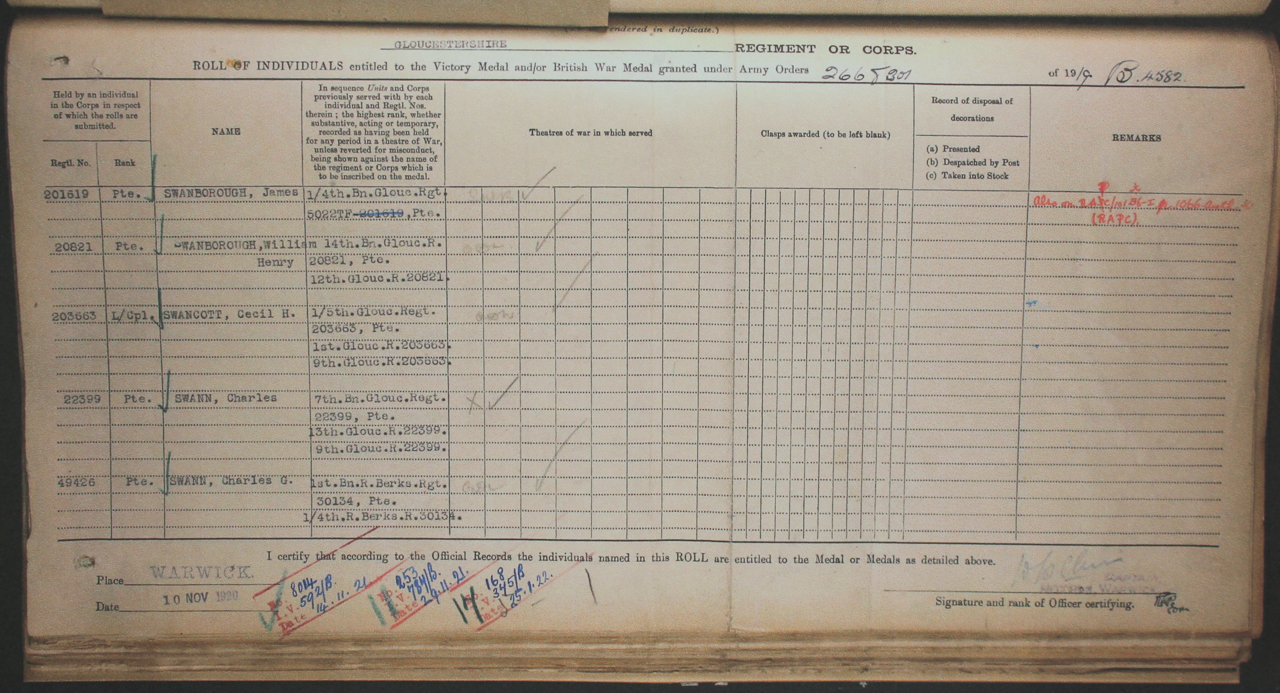 rendered in duplicate.)
GLOUCESTERSHIRE REGIMENT OR CORPS.
ROLL OF INDIVIDUALS entitled to the Victory Medal and/or British War Medal granted under Army Orders 266 & 301 of 1919 B. 4582.
Held by an individual in the Corps in respect of which the rolls are submitted.
Regtl. No.
Rank
NAME
In sequence Units and Corps previously served with by each individual and Regtl. Nos. therein ; the highest rank, whether substantive, acting or temporary, recorded as having been held for any period in a theatre of War, unless reverted for misconduct, being shown against the name of the regiment or Corps which is to be inscribed on the medal.
Theatres of war in which served
Clasps awarded (to be left blank)
Record of disposal of decorations
(a) Presented
(b) Despatched by Post
(c) Taken into Stock
REMARKS
201619 Pte. SWANBOROUGH, James 1/4th.Bn.Glouc.Rgt.
5022TF 201619,Pte.
Also on
(RAPC).
20821 Pte. SWANBOROUGH,William 14th.Bn.Glouc.R.
Henry 20821, Pte.
12th.Glouc.R.20821.
203663 L/Cpl. SWANCOTT, Cecil H. 1/5th.Glouc.Regt.
203663, Pte.
1st.Glouc.R.203663.
9th.Glouc.R.203663.
22399 Pte. SWANN, Charles 7th.Bn.Glouc.Regt.
22399, Pte.
13th.Glouc.R.22399.
9th.Glouc.R.22399.
49426 Pte. SWANN, Charles G. 1st.Bn.R.Berks.Rgt.
30134, Pte.
1/4th.R.Berks.R.30134.
I certify that according to the Official Records the individuals named in this ROLL are entitled to the Medal or Medals as detailed above.
Place WARWICK.
Date 10 NOV 1920
No. 8014
I.V. 592/B.
Date 14.11.21
No. 253
I.V. 784/B.
Date 29.11.21.
No. 168
I.V. 345/B
Date 25.1.22.
Signature and rank of Officer certifying.